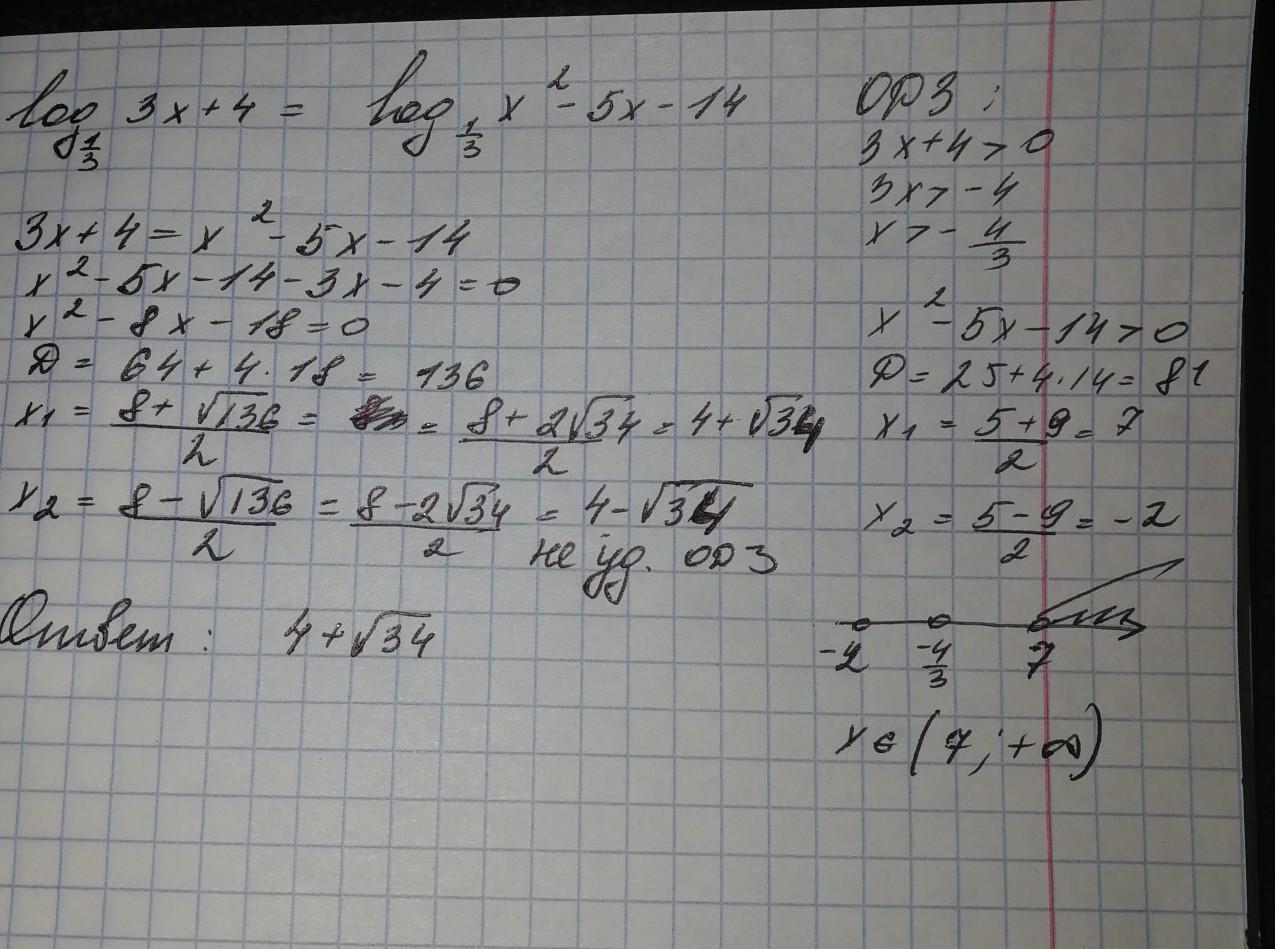 log_{1/3} 3x+4 = log_{1/3} x²-5x-14
3x+4 = x²-5x-14
x²-5x-14-3x-4=0
x²-8x-18=0
D = 64+4·18 = 136
x₁ = (8+√136)/2 = = (8+2√34)/2 = 4+√34
x₂ = (8-√136)/2 = (8-2√34)/2 = 4-√34
не уд. ОДЗ
Ответ: 4+√34
ОДЗ:
3x+4>0
3x>-4
x>-4/3
x²-5x-14>0
D=25+4·14=81
x₁ = (5+9)/2 = 7
x₂ = (5-9)/2 = -2
-2 -4/3 7
x∈(7;+∞)